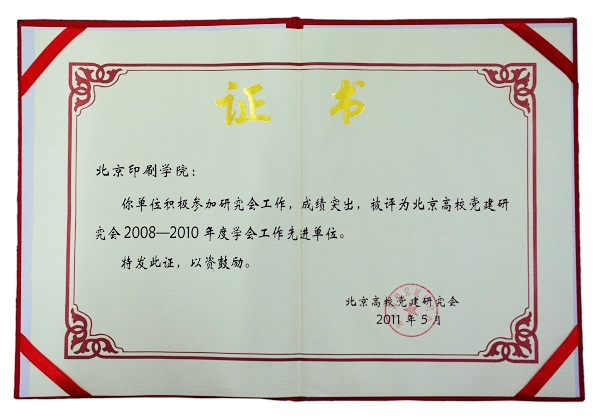 证 书
北京印刷学院：
你单位积极参加研究会工作，成绩突出，被评为北京高校党建研
究会2008—2010年度学会工作先进单位。
特发此证，以资鼓励。
北京高校党建研究会
2011年5月